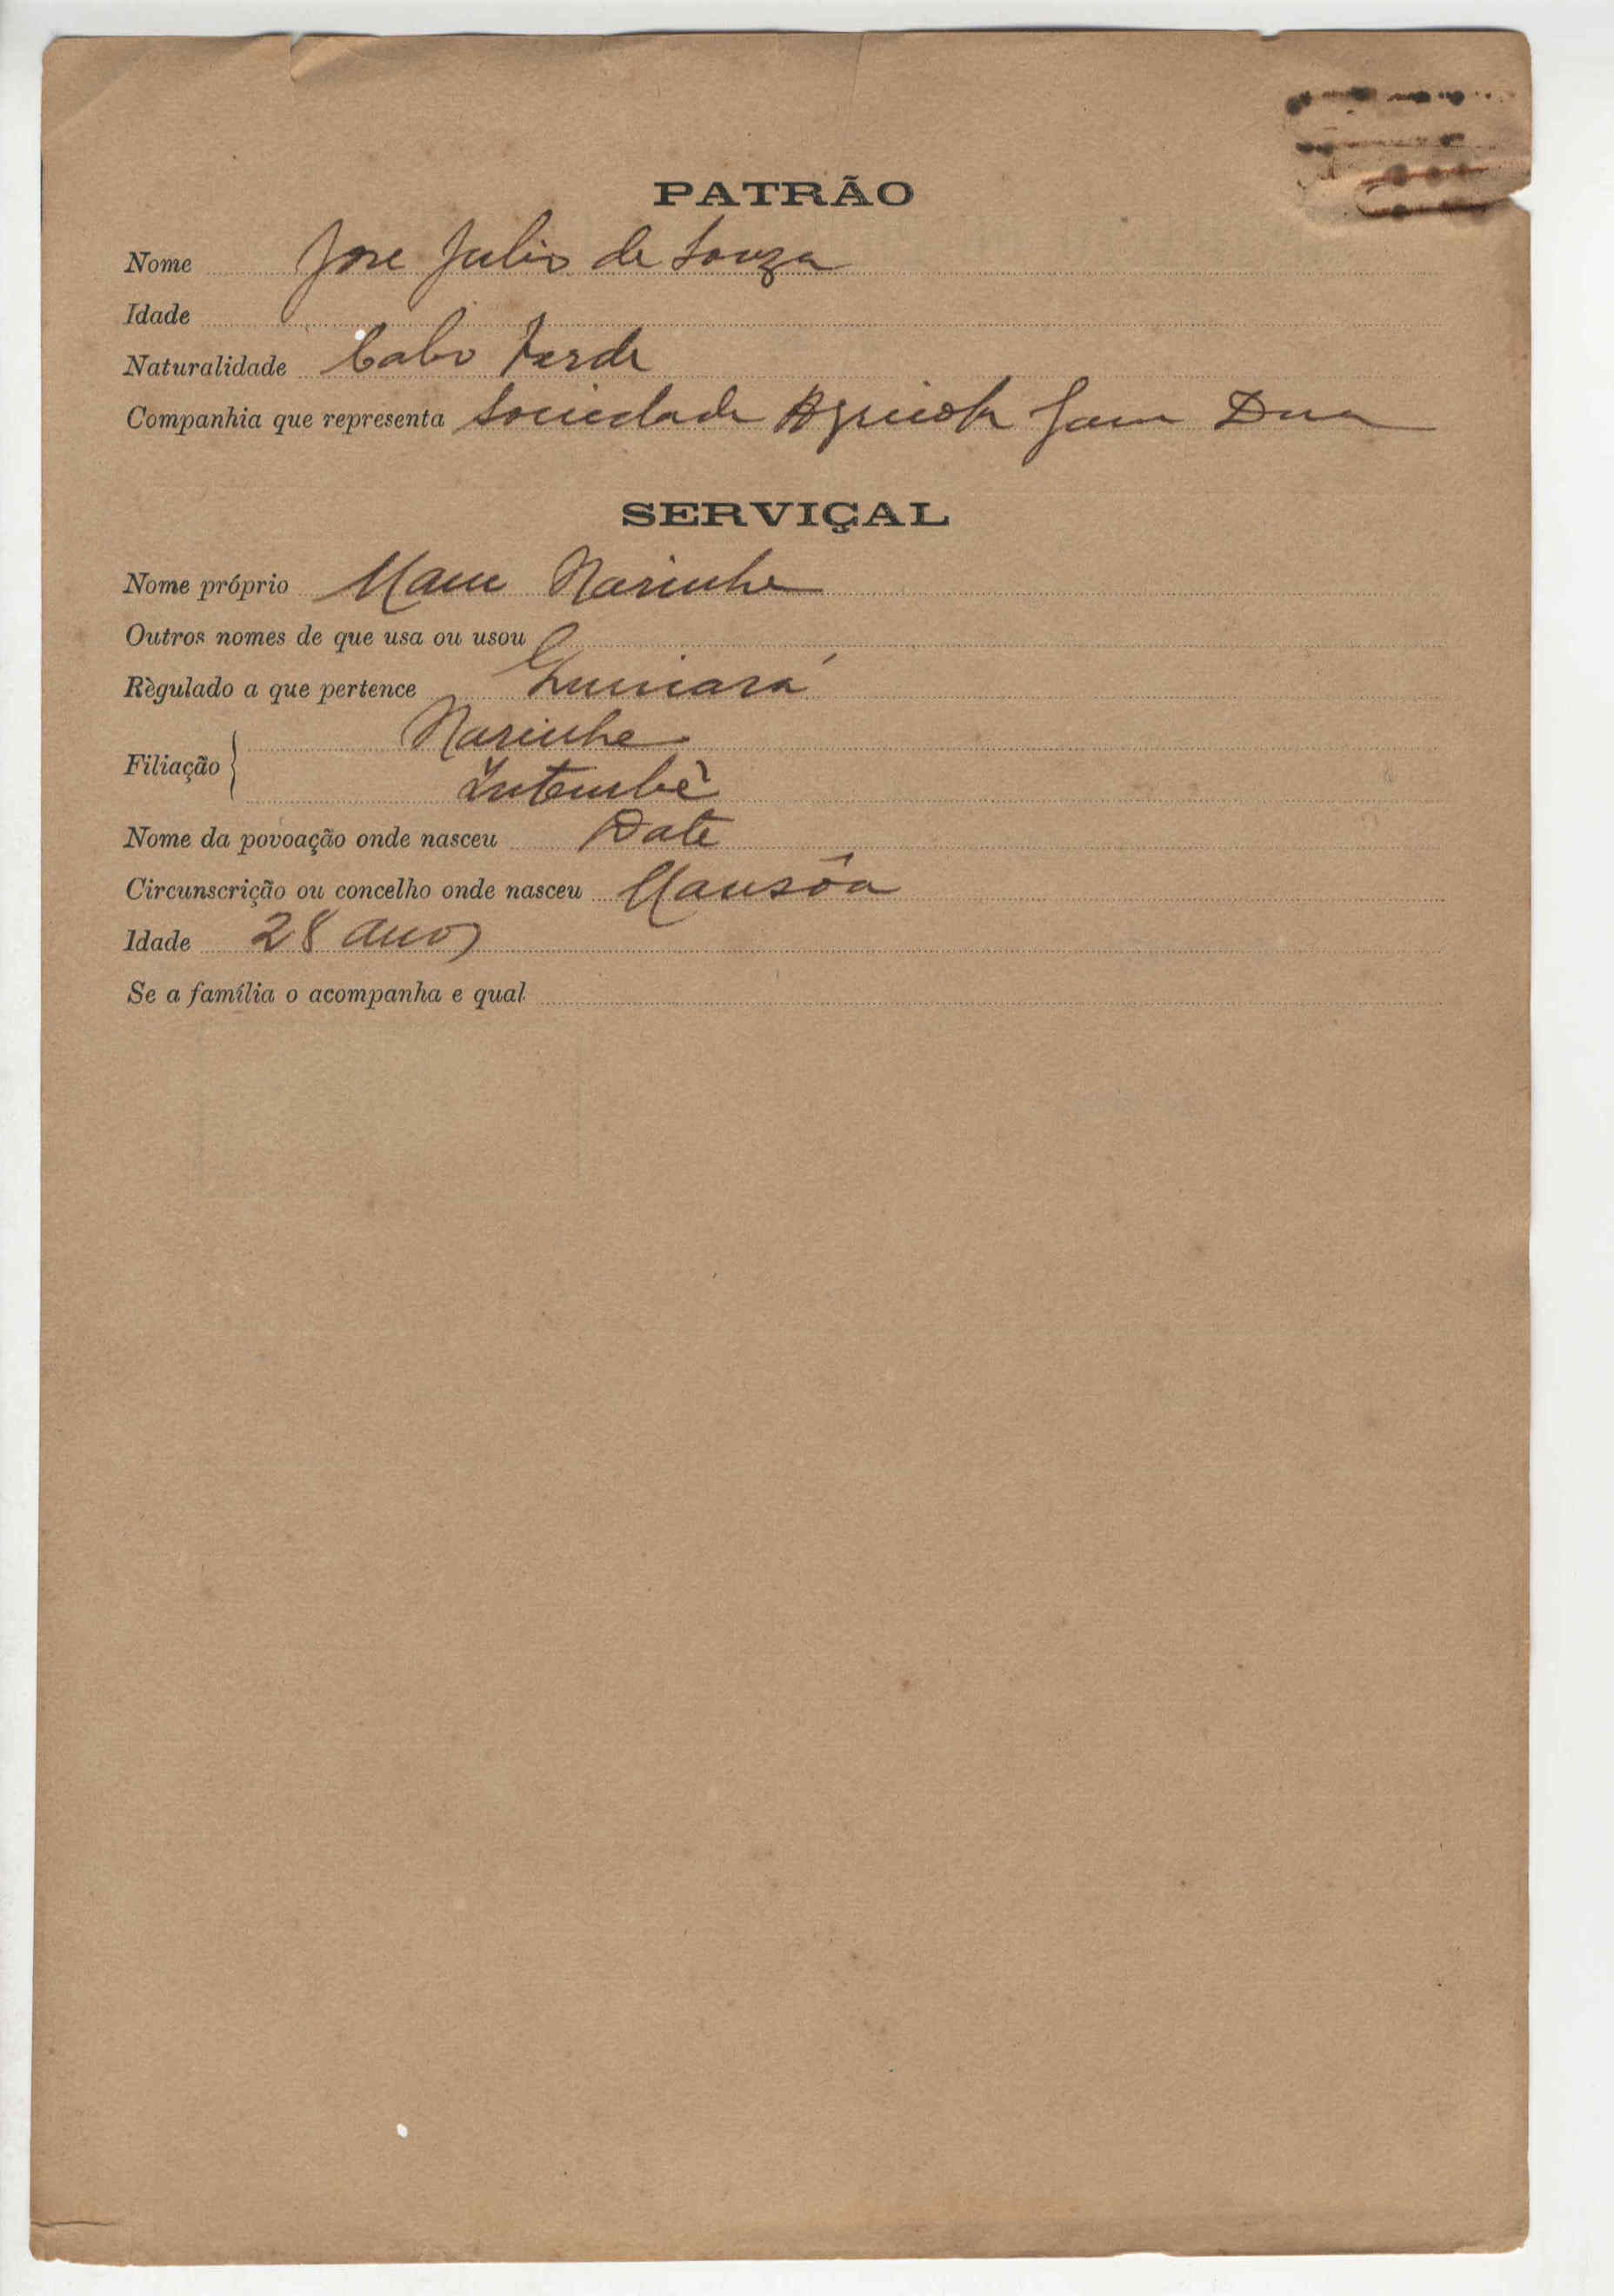 PATRÃO
Nome Jose Julio de Souza
Idade
Naturalidade Cabo Verde
Companhia que representa Sociedade Agricola Gam
SERVIÇAL
Nome próprio Narinhe
Outros nomes de que usa ou usou
Règulado a que pertence
Filiação { Narinhe
Intembé
Nome da povoação onde nasceu Date
Circunscrição ou concelho onde nasceu Mansôa
Idade 28 anos
Se a família o acompanha e qual